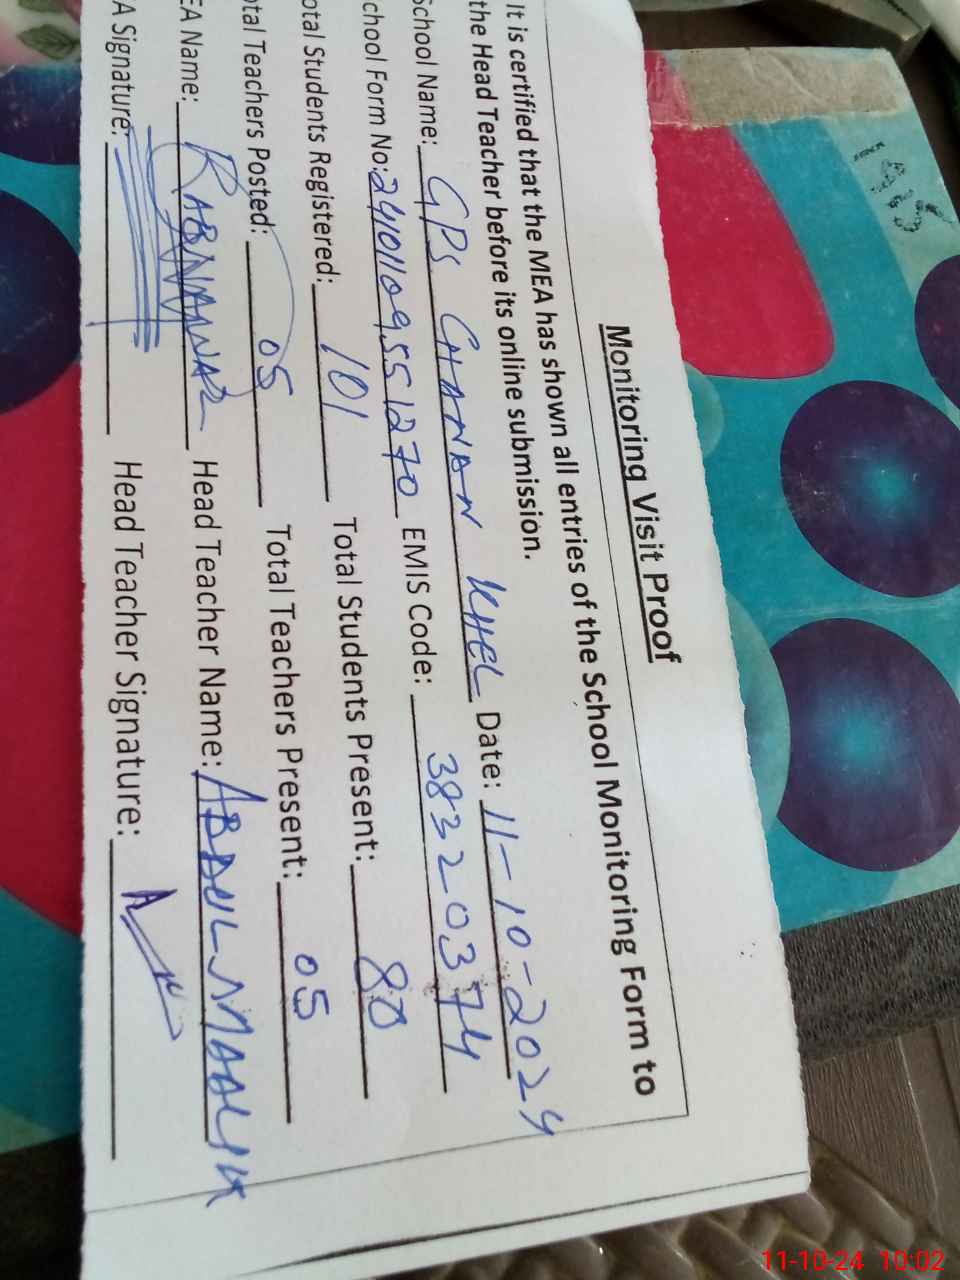 Monitoring Visit Proof
It is certified that the MEA has shown all entries of the School Monitoring Form to
the Head Teacher before its online submission.
School Name: GPS CHANAN KHEL Date: 11-10-2024
chool Form No: 24101109551270 EMIS Code: 38320374
otal Students Registered: 101 Total Students Present: 80
otal Teachers Posted: 05 Total Teachers Present: 05
EA Name: Head Teacher Name: ABDUL MAALIK
A Signature: Head Teacher Signature:
11-10-24 10:02